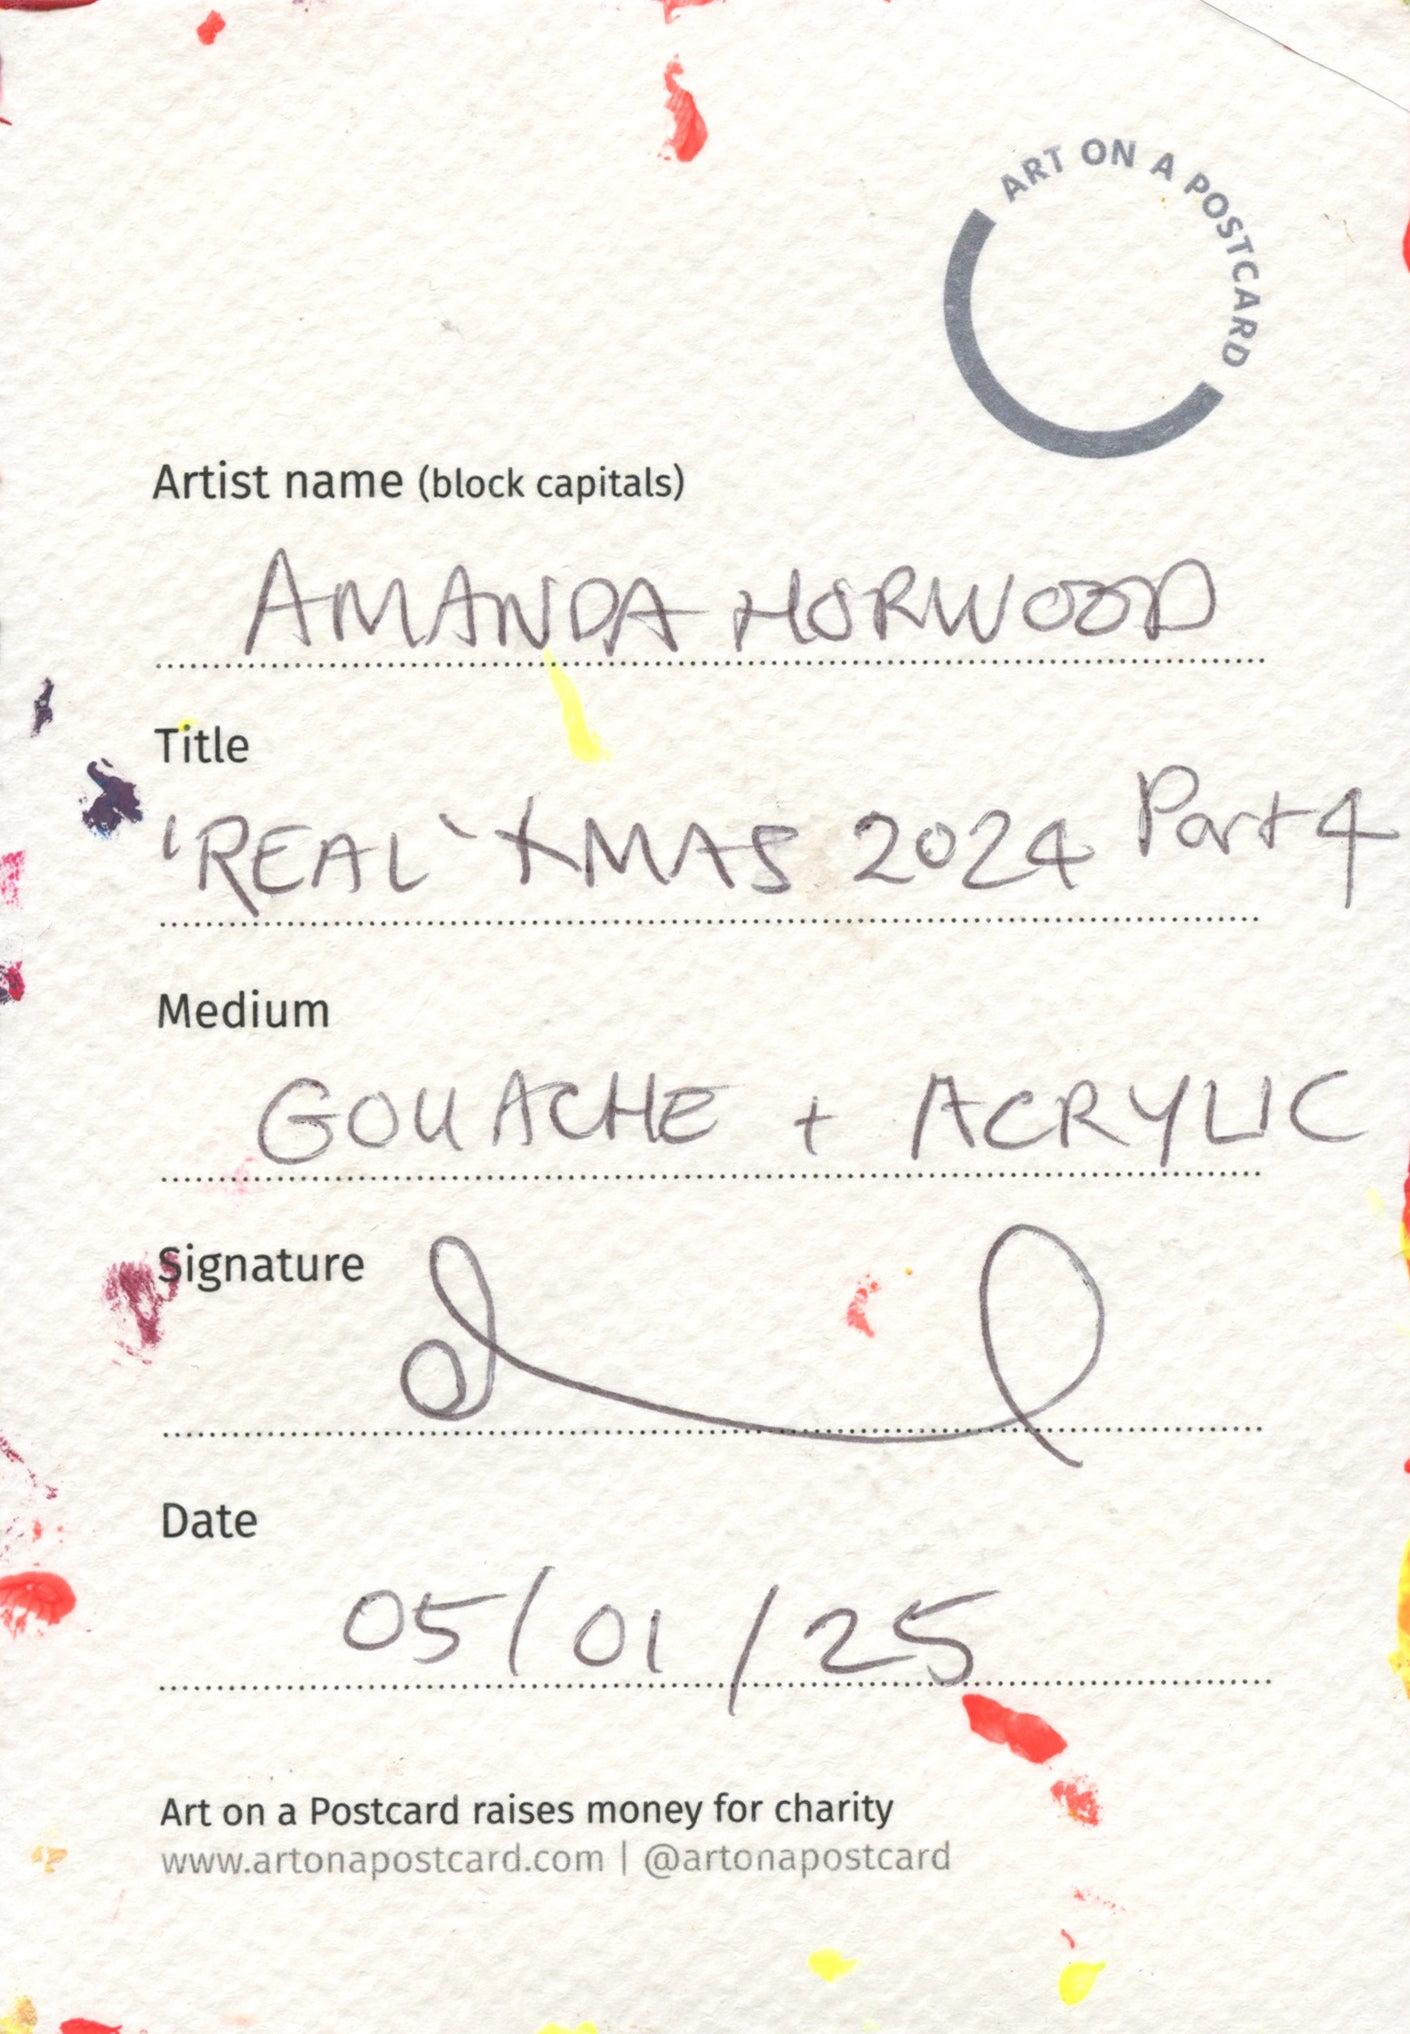 ART ON A POSTCARD
Artist name (block capitals)
AMANDA HORWOOD
Title
'REAL' XMAS 2024 Part 4
Medium
GOUACHE + ACRYLIC
Signature
Date
05/01/25
Art on a Postcard raises money for charity
www.artonapostcard.com | @artonapostcard